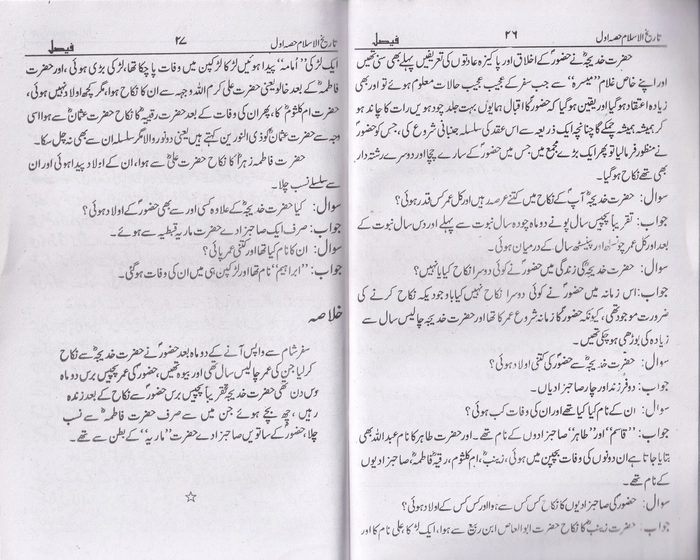 تاریخ الاسلام حصہ اول ۲۶ فیصل
حضرت خدیجہؓ نے حضورؐ کے اخلاق اور پاکیزہ عادتوں کی تعریفیں پہلے بھی سنی تھیں
اور اپنے خاص غلام ”میسرہ“ سے جب سفر کے عجیب عجیب حالات معلوم ہوئے تو اور بھی
زیادہ اعتقاد ہو گیا اور یقین ہو گیا کہ حضورؐ کا اقبال ہمایوں بہت جلد چودہویں رات کا چاند ہو
کر ہمیشہ ہمیشہ چمکے گا چنانچہ ایک ذریعہ سے اس عقد کی سلسلہ جنبانی شروع کی، جس کو حضورؐ
نے منظور فرما لیا تو پھر ایک بڑے مجمع میں جس میں حضورؐ کے سارے چچا اور دوسرے رشتہ دار
بھی تھے نکاح ہو گیا۔
سوال: حضرت خدیجہؓ آپؐ کے نکاح میں کتنے عرصہ رہیں اور کل عمر کس قدر ہوئی؟
جواب: تقریباً پچیس سال پونے دو ماہ چودہ سال نبوت سے پہلے اور دس سال نبوت کے
بعد اور کل عمر چونسٹھ اور پینسٹھ سال کے درمیان ہوئی۔
سوال: حضرت خدیجہؓ کی زندگی میں حضورؐ نے کوئی دوسرا نکاح کیا یا نہیں؟
جواب: اس زمانہ میں حضورؐ نے کوئی دوسرا نکاح نہیں کیا باوجود یکہ نکاح کرنے کی
ضرورت موجود تھی، کیونکہ حضورؐ کا زمانہ شروع عمر کا تھا اور حضرت خدیجہؓ چالیس سال سے
زیادہ کی بوڑھی ہو چکی تھیں۔
سوال: حضرت خدیجہؓ سے حضورؐ کی کتنی اولاد ہوئی؟
جواب: دو فرزند اور چار صاحبزادیاں۔
سوال: ان کے نام کیا کیا تھے اور ان کی وفات کب ہوئی؟
جواب: ”قاسم“ اور ”طاہر“ صاحبزادوں کے نام تھے۔ اور حضرت طاہر کا نام عبداللہ بھی
بتایا جاتا ہے ان دونوں کی وفات بچپن میں ہوئی، زینبؓ، ام کلثوم، رقیہؓ، فاطمہؓ، صاحبزادیوں
کے نام تھے۔
سوال: حضورؐ کی صاحبزادیوں کا نکاح کس کس سے ہوا اور کس کس کے اولاد ہوئی؟
جواب: حضرت زینبؓ کا نکاح حضرت ابوالعاص ابن ربیع سے ہوا، ایک لڑکا علی نام کا اور
تاریخ الاسلام حصہ اول ۲۷ فیصل
ایک لڑکی ”اُمامہ“ پیدا ہوئیں لڑکا لڑکپن میں وفات پا چکا تھا، لڑکی بڑی ہوئی، اور حضرت
فاطمہؓ کے بعد خالو یعنی حضرت علی کرم اللہ وجہہ سے ان کا نکاح ہوا، مگر کچھ اولاد نہیں ہوئی،
حضرت ام کلثومؓ کا، پھر ان کی وفات کے بعد حضرت رقیہؓ کا نکاح حضرت عثمانؓ سے ہوا اسی
وجہ سے حضرت عثمانؓ کو ذی النورین کہتے ہیں یعنی دو نور والا مگر سلسلہ ان سے بھی نہ چل سکا۔
حضرت فاطمہ زہراؓ کا نکاح حضرت علیؓ سے ہوا، ان کے اولاد پیدا ہوئی اور ان
سے سلسلے نسب چلا۔
سوال: کیا حضرت خدیجہؓ کے علاوہ کسی اور سے بھی حضورؐ کے اولاد ہوئی؟
جواب: صرف ایک صاحبزادے حضرت ماریہ قبطیہؓ سے ہوئے۔
سوال: ان کا نام کیا تھا اور کتنی عمر پائی؟
جواب: ”ابراہیم“ نام تھا اور لڑکپن ہی میں ان کی وفات ہو گئی۔
خلاصہ
سفر شام سے واپس آنے کے دو ماہ بعد حضورؐ نے حضرت خدیجہؓ سے نکاح
کر لیا جن کی عمر چالیس سال تھی اور بیوہ تھیں، حضورؐ کی عمر پچیس برس دو ماہ
دس دن تھی حضرت خدیجہؓ تقریباً پچیس برس حضورؐ سے نکاح کے بعد زندہ
رہیں، چھ بچے ہوئے جن میں سے صرف حضرت فاطمہؓ سے نسب
چلا، حضورؐ کے ساتویں صاحبزادے حضرت ”ماریہؓ“ کے بطن سے تھے۔